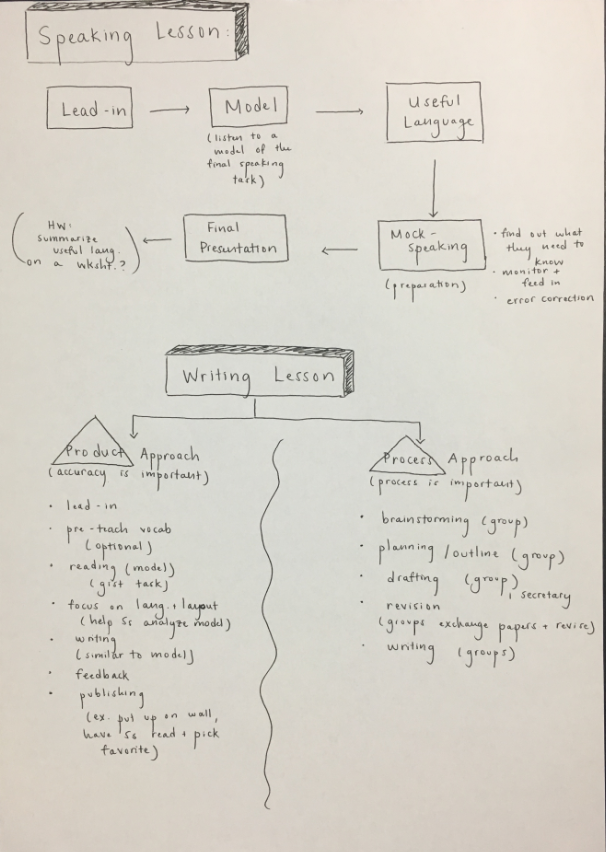 Speaking Lesson:
Lead-in
Model
(listen to a
model of the
final speaking
task)
Useful
Language
Mock-
Speaking
(preparation)
• find out what
they need to
know
• monitor +
feed in
• error correction
Final
Presentation
(HW:
summarize
useful lang.
on a wksht.?)
Writing Lesson
Product Approach
(accuracy is important)
• lead-in
• pre-teach vocab
(optional)
• reading (model)
(gist task)
• focus on lang. + layout
(help Ss analyze model)
• writing
(similar to model)
• feedback
• publishing
(ex. put up on wall,
have Ss read + pick
favorite)
Process Approach
(process is important)
• brainstorming (group)
• planning/outline (group)
• drafting (group)
, secretary
• revision
(groups exchange papers + revise)
• writing (groups)